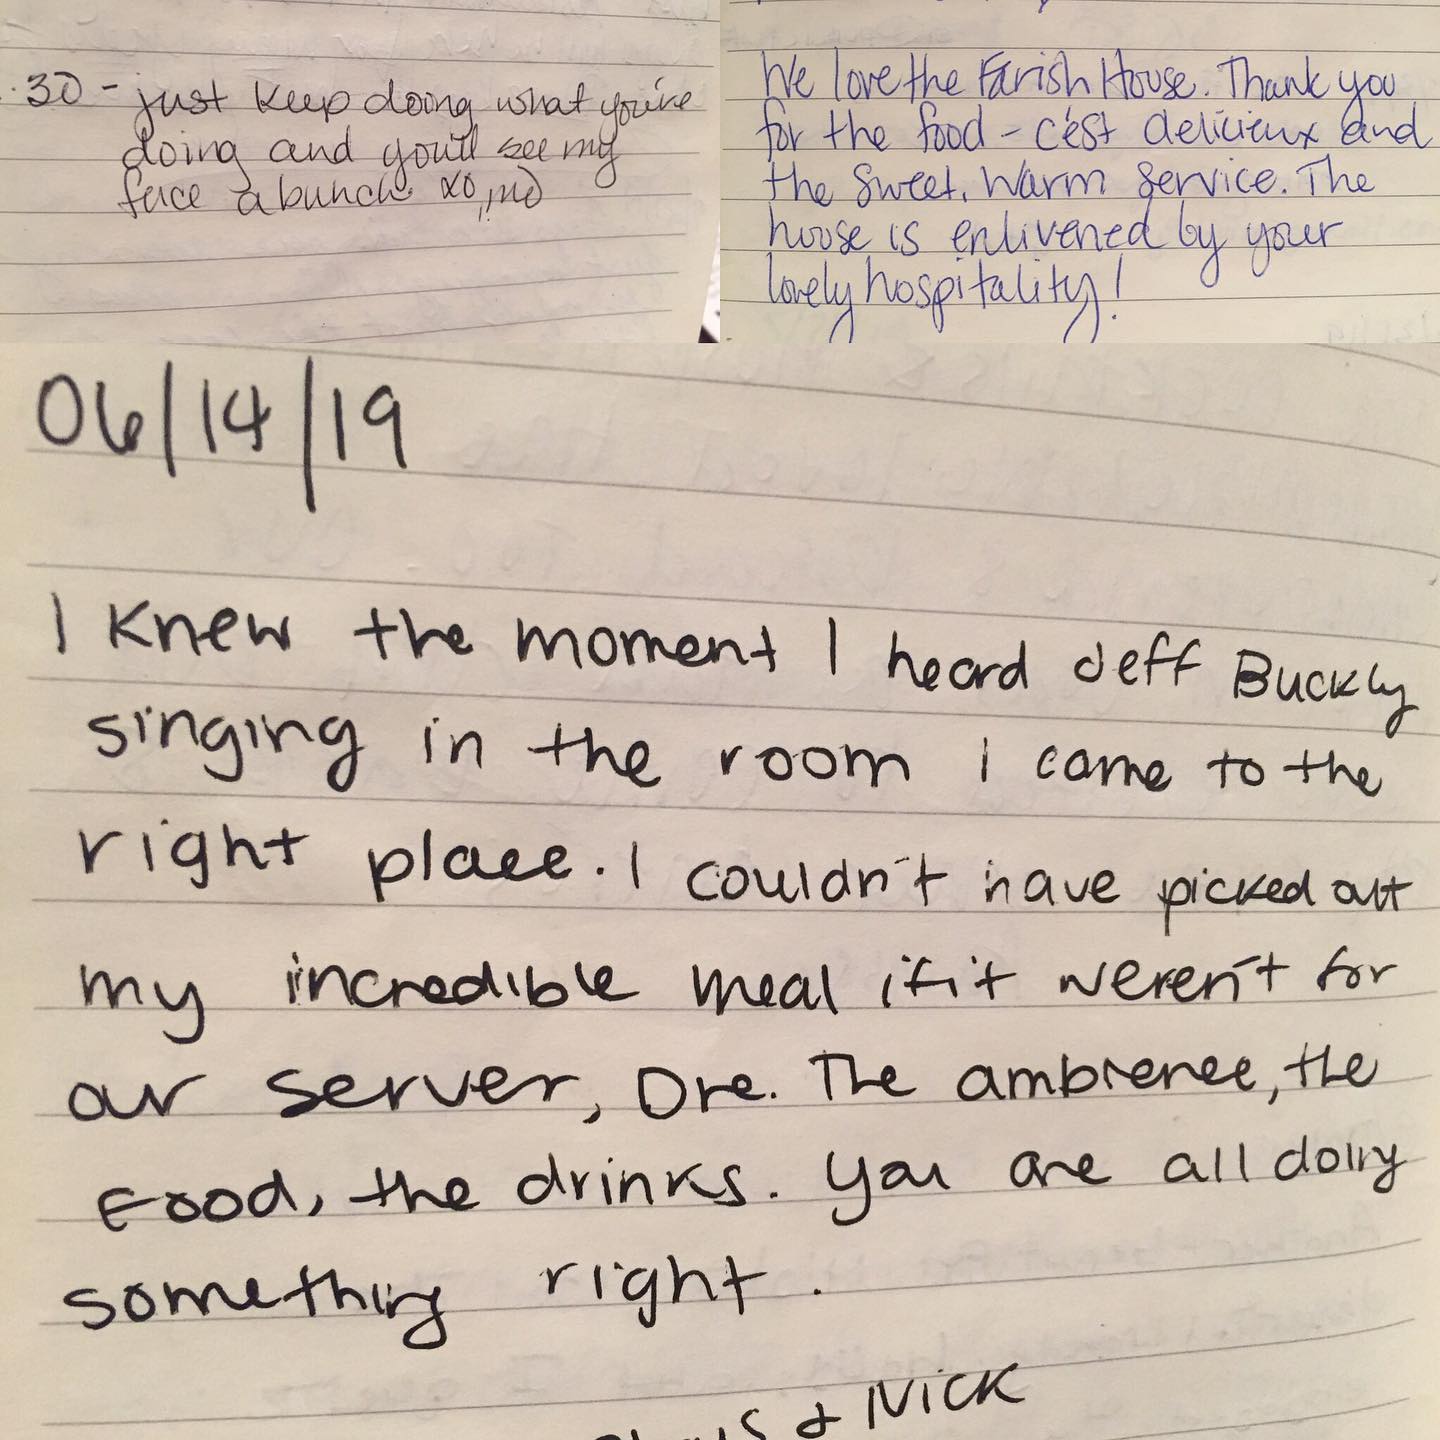 .30 - just keep doing what you're
doing and you'll see my
face a bunch xo,
We love the Farish House. Thank you
for the food - c'est delicieux and
the sweet, warm service. The
house is enlivened by your
lovely hospitality!
06/14/19
I knew the moment I heard Jeff Buckly
singing in the room I came to the
right place. I couldn't have picked out
my incredible meal if it weren't for
our server, Dre. The ambience, the
food, the drinks. You are all doing
something right.
& Nick